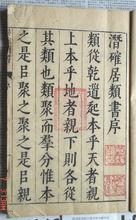 潛確居類書序
類從乾道起本乎天者親
上本乎地者親下則各從
其類也類聚而羣分惟本
之是㠯聚之聚之是㠯親